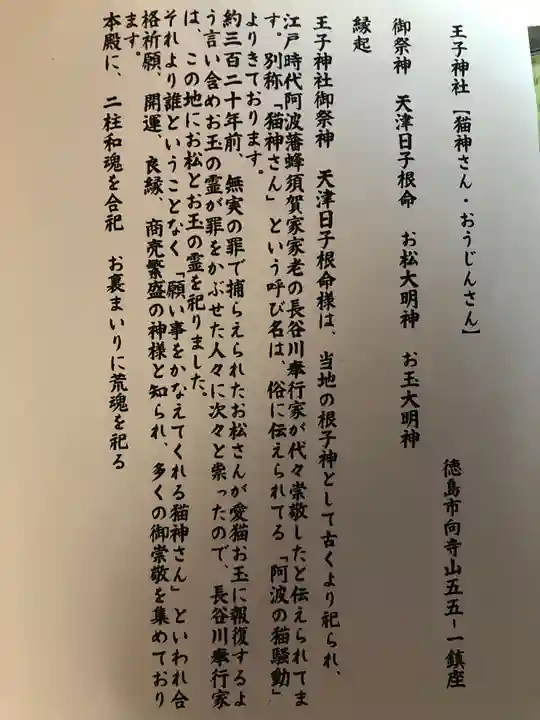 王子神社［猫神さん・おうじんさん］
徳島市向寺山五五ー一鎮座
御祭神　天津日子根命　お松大明神　お玉大明神
縁起
王子神社御祭神　天津日子根命様は、当地の根子神として古くより祀られ、
江戸時代阿波藩蜂須賀家家老の長谷川奉行家が代々崇敬したと伝えられてま
す。別称「猫神さん」という呼び名は、俗に伝えられてる「阿波の猫騒動」
よりきております。
約三百二十年前、無実の罪で捕らえられたお松さんが愛猫お玉に報復するよ
う言い含めお玉の霊が罪をかぶせた人々に次々と祟ったので、長谷川奉行家
は、この地にお松とお玉の霊を祀りました。
それより誰ということなく「願い事をかなえてくれる猫神さん」といわれ合
格祈願、開運、良縁、商売繁盛の神様と知られ、多くの御崇敬を集めており
ます。
本殿に、二柱和魂を合祀　お裏まいりに荒魂を祀る